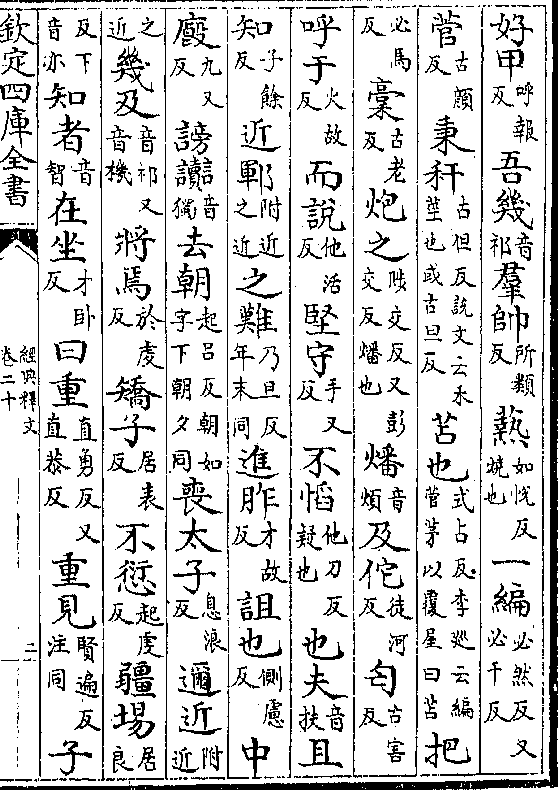 好甲呼報反吾幾音祁羣帥所類反爇如悅反燒也一編必然反又必千反
菅古顏反秉秆古但反說文云禾莖也或古旦反苫也式占反李巡云編菅茅以覆屋曰苫把
必馬反稾古老反炮之陟交反又彭交反燔也燔音煩及佗徒河反匄古害反
呼于火故反而說他活反堅守手又反不慆他刀反疑也也夫音扶且
知子餘反近鄆附近之近之難乃旦反年末同進胙才故反詛也側慮反中
廏九又反謗讟音獨去朝起呂反朝如字下朝夕同喪太子息浪反邇近附近
之近幾及音祁又音機將焉於虔反矯子居表反不愆起虔反疆埸居良
反下音亦知者音智在坐才卧反曰重直勇反又直恭反重見賢遍反注同子
欽定四庫全書
經典釋文
卷二十
二